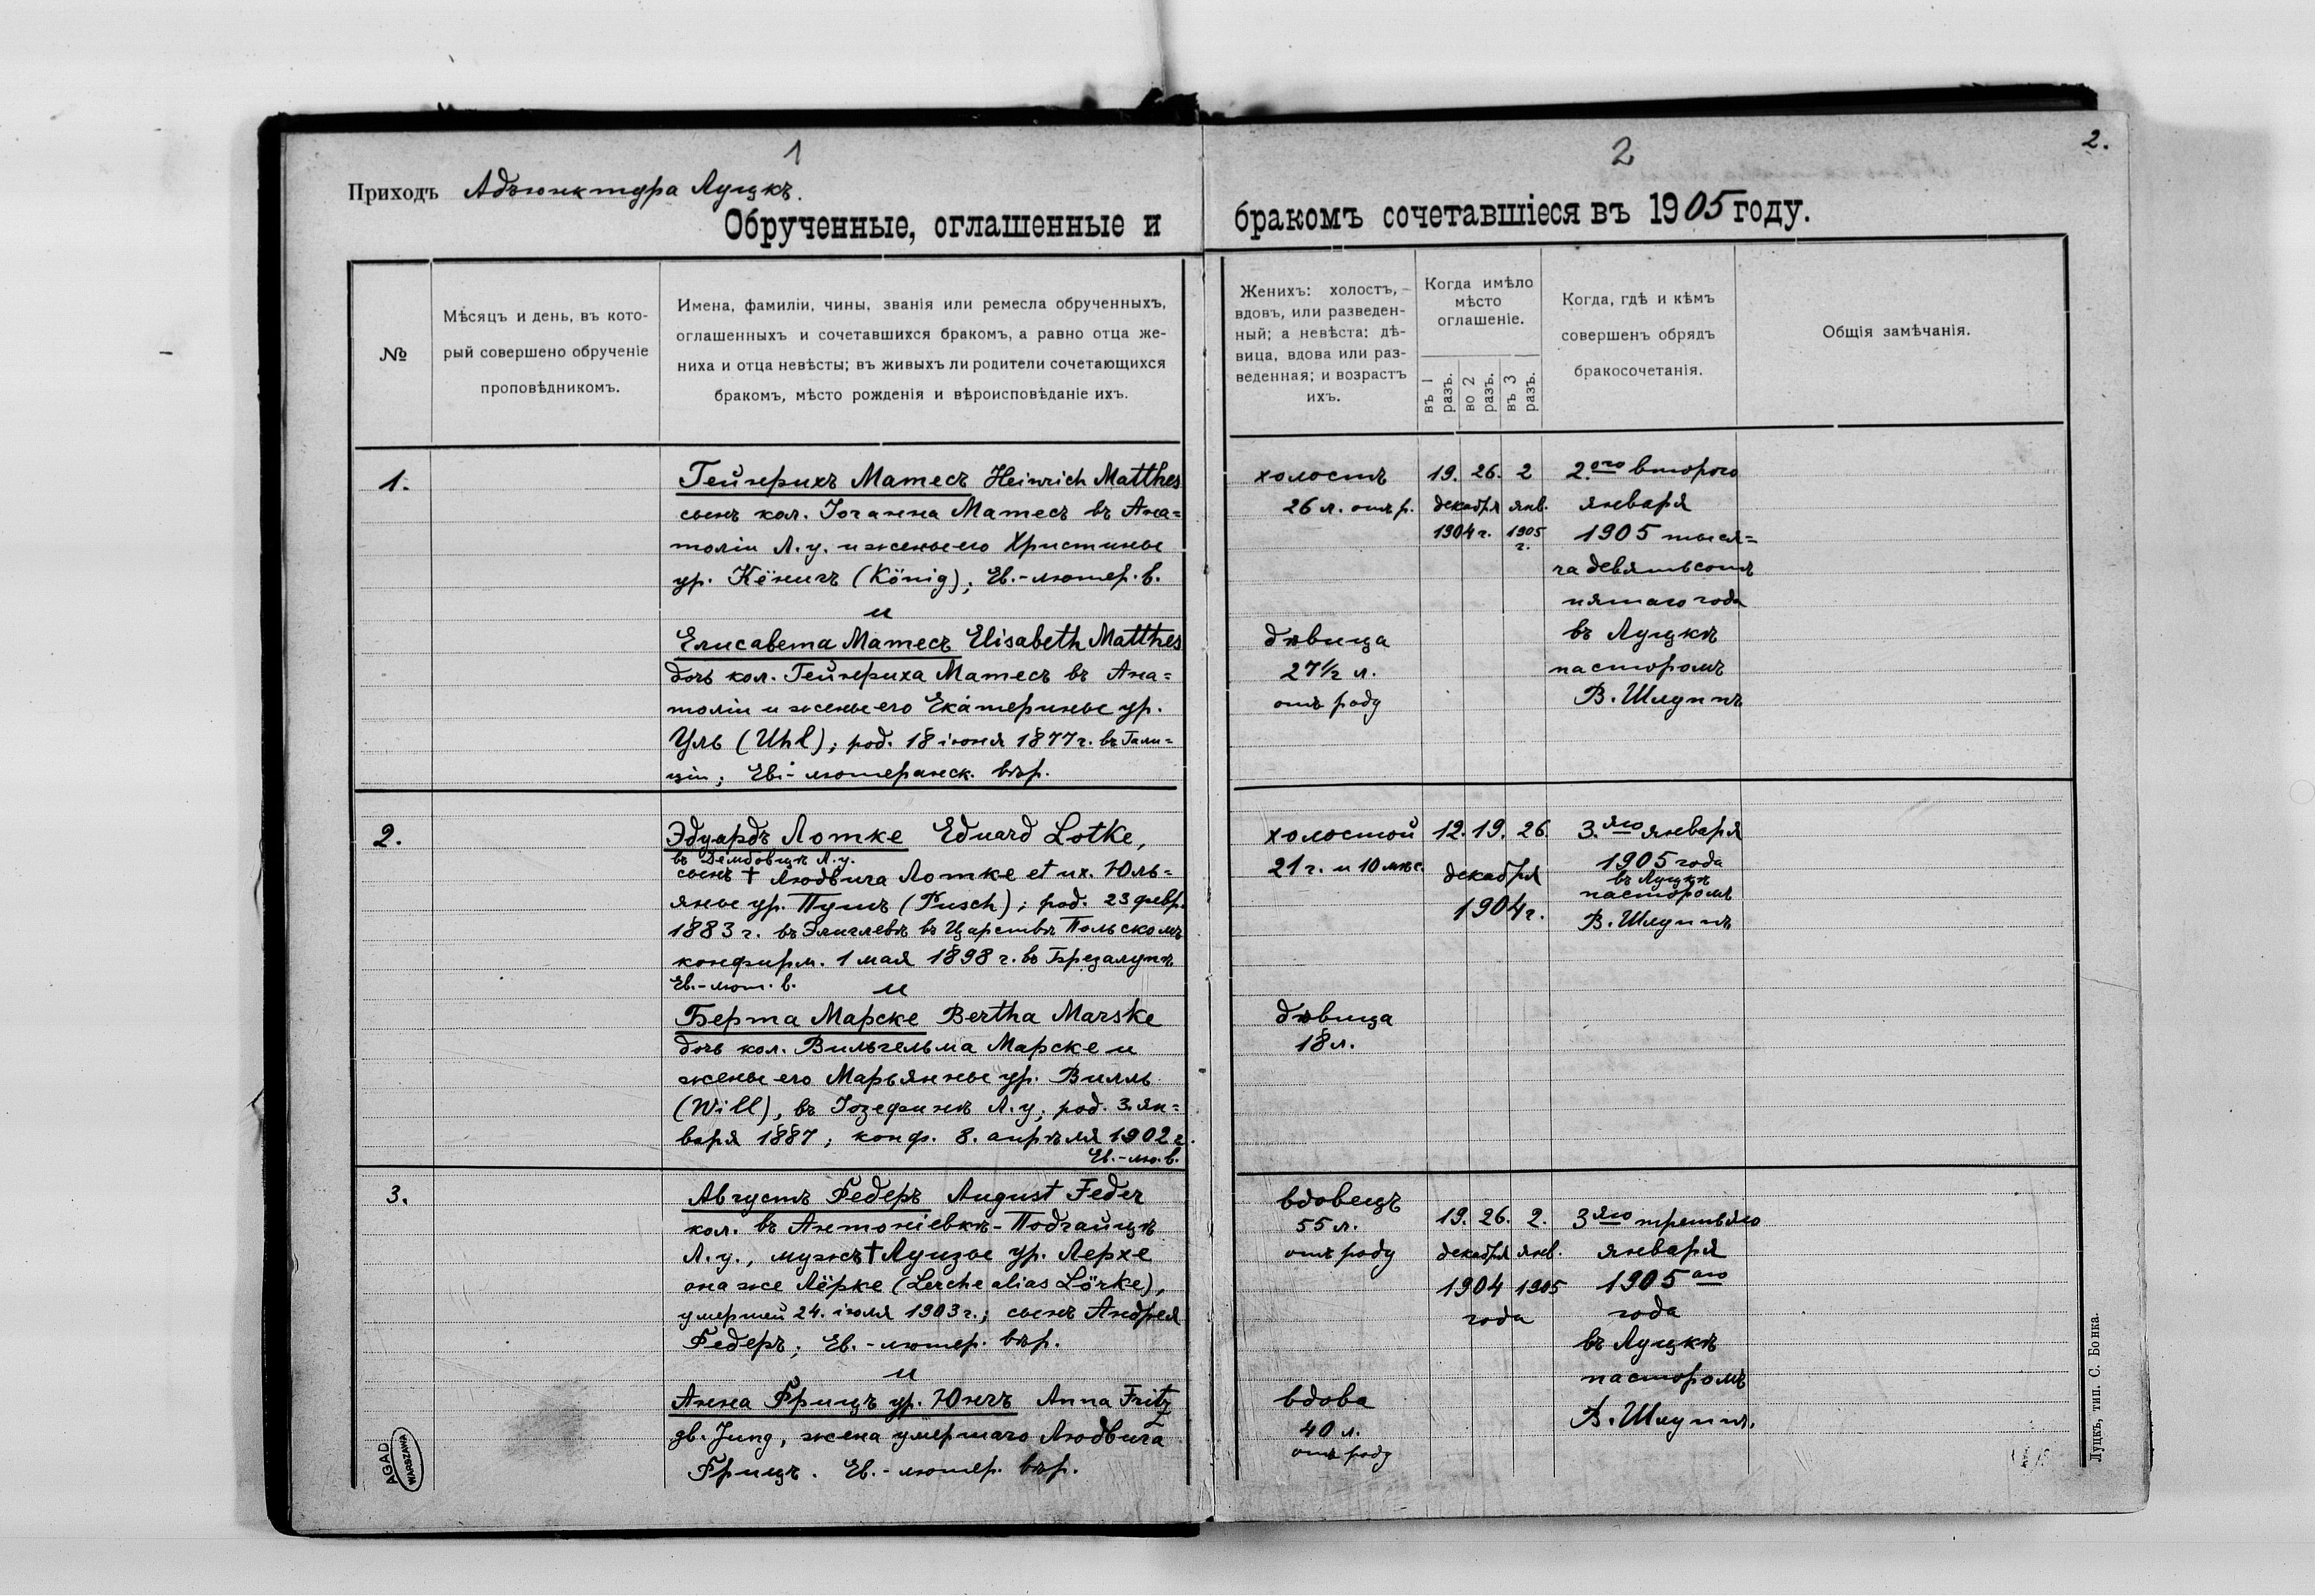 1
Приходъ Адъюнктура Луцкъ.
Обрученные, оглашенные и
№
Мѣсяцъ и день, въ кото-
рый совершено обрученіе
проповѣдникомъ.
Имена, фамиліи, чины, званія или ремесла обрученныхъ,
оглашенныхъ и сочетавшихся бракомъ, а равно отца же-
ниха и отца невѣсты; въ живыхъ ли родители сочетающихся
бракомъ, мѣсто рожденія и вѣроисповѣданіе ихъ.
1.
Гейнрихъ Матесъ Heinrich Matthes
сынъ кол. Іоганна Матесъ въ Ана=
толіи Л. у. и жены его Христины
ур. Кёнигъ (König); Ев.-лютер. в.
и
Елисавета Матесъ Elisabeth Matthes
дочь кол. Гейнриха Матесъ въ Ана=
толіи и жены его Екатерины ур.
Уль (Uhl); род. 18 іюня 1877 г. въ Гали=
ціи; Ев.-лютеранск. вѣр.
2.
Эдуардъ Лотке Eduard Lotke,
въ Дембовцѣ Л. у.
сынъ † Людвига Лотке et ux. Юль=
яны ур. Пушъ (Pusch); род. 23 февр.
1883 г. въ въ Царствѣ Польскомъ
конфирм. 1 мая 1898 г. въ
Ев.-лют. в.
и
Берта Марске Bertha Marske
дочь кол. Вильгельма Марске и
жены его Марьянны ур. Вилль
(Will), въ Іозефинѣ Л. у. род. 3. ян=
варя 1887; конф. 8. апрѣля 1902 г.
Ев.-лю. в.
3.
Августъ Федеръ August Feder
кол. въ Антоніевкѣ-Подгайцѣ
Л. у., мужъ † Луизы ур. Лерхе
она же Лёрке (Lerche alias Lörke),
умершей 24. іюля 1903 г.; сынъ Андрея
Федеръ; Ев.-лютер. вѣр.
и
Анна Фрицъ ур. Юнгъ Anna Fritz
gb. Jung, жена умершаго Людвига
Фрицъ. Ев.-лютер. вѣр.
AGAD
WARSZAWA
2
2.
бракомъ сочетавшіеся въ 1905 году.
Женихъ: холостъ,
вдовъ, или разведен-
ный; а невѣста: дѣ-
вица, вдова или раз-
веденная; и возрастъ
ихъ.
Когда имѣло
мѣсто
оглашеніе.
въ 1
разъ.
во 2
разъ.
въ 3
разъ.
Когда, гдѣ и кѣмъ
совершенъ обрядъ
бракосочетанія.
Общія замѣчанія.
холостъ
26 л. отъ р.
19. 26. 2
декабря янв.
1904 г. 1905
г.
2.ого второго
января
1905 тыся=
ча девятьсотъ
пятаго года
въ Луцкѣ
пасторомъ
В. Шлуппъ
дѣвица
27½ л.
отъ роду
холостой
21 г. и 10 мѣс.
12. 19. 26.
декабря
1904 г.
3.яго января
1905 года
въ Луцкѣ
пасторомъ
В. Шлуппъ
дѣвица
18 л.
вдовецъ
55 л.
отъ роду
19. 26. 2.
декабря янв.
1904 1905
года
3яго третьяго
января
1905 аго
года
въ Луцкѣ
пасторомъ
В. Шлуппъ.
вдова
40 л.
отъ роду
Луцкъ, тип. С. Бонка.